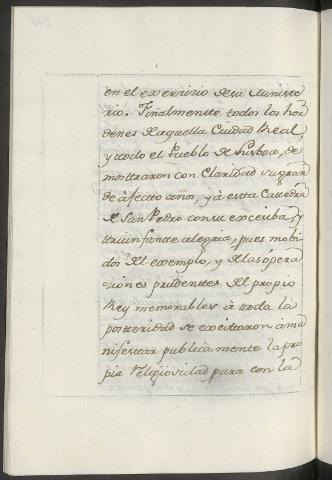 en el exercicio de su Ministe
rio. Finalmente todos los hor
denes de aquella Ciudad Real,
y todo el Pueblo de Lisboa, de
mostraron con Claridad su gran
de afecto años, y à esta Cattedra
de San Pedro con su excesiba, y
triuinfante alegria, pues mobi
dos del exemplo, y de las opera
ciones prudentes del propio
Rey memorables à toda la
posteridad se excitaron à ma
nifestar publicamente la pro
pia religiosidad para con la